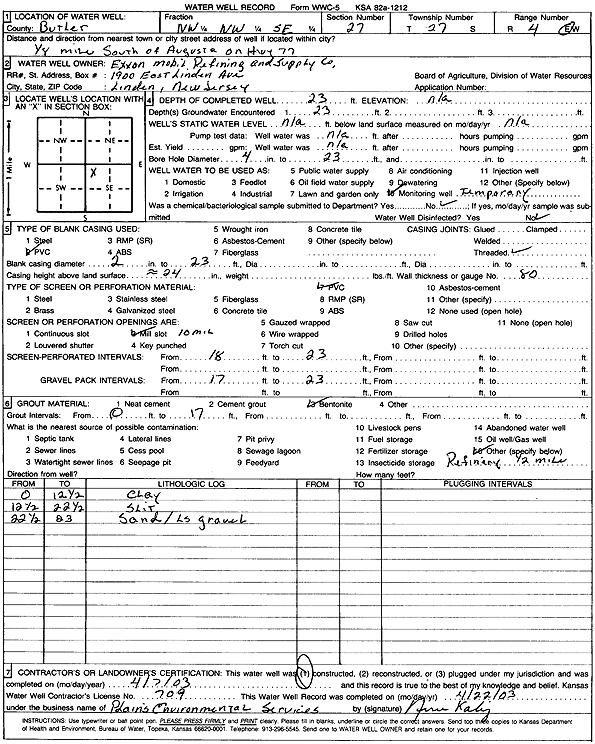 WATER WELL RECORD Form WWC-5 KSA 82a-1212
1 LOCATION OF WATER WELL: Fraction Section Number Township Number Range Number
County: Butler NW ¼ NW ¼ SE ¼ 27 T 27 S R 4 E/W
Distance and direction from nearest town or city street address of well if located within city?
¼ mile South of Augusta on Hwy 77
2 WATER WELL OWNER: Exxon Mobil Refining and Supply Co,
RR#, St. Address, Box # : 1900 East Linden Ave Board of Agriculture, Division of Water Resources
City, State, ZIP Code : Linden, New Jersey Application Number:
3 LOCATE WELL'S LOCATION WITH AN "X" IN SECTION BOX:
N
NW NE
W E
X
SW SE
S
1 Mile
4 DEPTH OF COMPLETED WELL 23 ft. ELEVATION: n/a
Depth(s) Groundwater Encountered 1. 23 ft. 2. ft. 3. ft.
WELL'S STATIC WATER LEVEL n/a ft. below land surface measured on mo/day/yr n/a
Pump test data: Well water was n/a ft. after hours pumping gpm
Est. Yield gpm: Well water was n/a ft. after hours pumping gpm
Bore Hole Diameter 4 in. to 23 ft., and in. to ft.
WELL WATER TO BE USED AS: 5 Public water supply 8 Air conditioning 11 Injection well
1 Domestic 3 Feedlot 6 Oil field water supply 9 Dewatering 12 Other (Specify below)
2 Irrigation 4 Industrial 7 Lawn and garden only 10 Monitoring well Temporary
Was a chemical/bacteriological sample submitted to Department? Yes No ✓; If yes, mo/day/yr sample was sub-
mitted Water Well Disinfected? Yes No ✓
5 TYPE OF BLANK CASING USED: 5 Wrought iron 8 Concrete tile CASING JOINTS: Glued Clamped
1 Steel 3 RMP (SR) 6 Asbestos-Cement 9 Other (specify below) Welded
2 PVC 4 ABS 7 Fiberglass Threaded ✓
Blank casing diameter 2 in. to 23 ft., Dia in. to ft., Dia in. to ft.
Casing height above land surface ≈24 in., weight lbs./ft. Wall thickness or gauge No. 80
TYPE OF SCREEN OR PERFORATION MATERIAL: 7 PVC 10 Asbestos-cement
1 Steel 3 Stainless steel 5 Fiberglass 8 RMP (SR) 11 Other (specify)
2 Brass 4 Galvanized steel 6 Concrete tile 9 ABS 12 None used (open hole)
SCREEN OR PERFORATION OPENINGS ARE: 5 Gauzed wrapped 8 Saw cut 11 None (open hole)
1 Continuous slot 3 Mill slot 10 mil 6 Wire wrapped 9 Drilled holes
2 Louvered shutter 4 Key punched 7 Torch cut 10 Other (specify)
SCREEN-PERFORATED INTERVALS: From 18 ft. to 23 ft., From ft. to ft.
From ft. to ft., From ft. to ft.
GRAVEL PACK INTERVALS: From 17 ft. to 23 ft., From ft. to ft.
From ft. to ft., From ft. to ft.
6 GROUT MATERIAL: 1 Neat cement 2 Cement grout 3 Bentonite 4 Other
Grout Intervals: From 0 ft. to 17 ft., From ft. to ft., From ft. to ft.
What is the nearest source of possible contamination: 10 Livestock pens 14 Abandoned water well
1 Septic tank 4 Lateral lines 7 Pit privy 11 Fuel storage 15 Oil well/Gas well
2 Sewer lines 5 Cess pool 8 Sewage lagoon 12 Fertilizer storage 16 Other (specify below)
3 Watertight sewer lines 6 Seepage pit 9 Feedyard 13 Insecticide storage Refinery 1/2 mile
Direction from well? How many feet?
FROM TO LITHOLOGIC LOG FROM TO PLUGGING INTERVALS
0 12½ Clay
12½ 22½ Slit
22½ 23 Sand / Ls gravel
7 CONTRACTOR'S OR LANDOWNER'S CERTIFICATION: This water well was (1) constructed, (2) reconstructed, or (3) plugged under my jurisdiction and was
completed on (mo/day/year) 4/7/03 and this record is true to the best of my knowledge and belief. Kansas
Water Well Contractor's License No. 709 This Water Well Record was completed on (mo/day/yr) 4/22/03
under the business name of Plains Environmental Services by (signature)
INSTRUCTIONS: Use typewriter or ball point pen. PLEASE PRESS FIRMLY and PRINT clearly. Please fill in blanks, underline or circle the correct answers. Send top three copies to Kansas Department
of Health and Environment, Bureau of Water, Topeka, Kansas 66620-0001. Telephone: 913-296-5545. Send one to WATER WELL OWNER and retain one for your records.